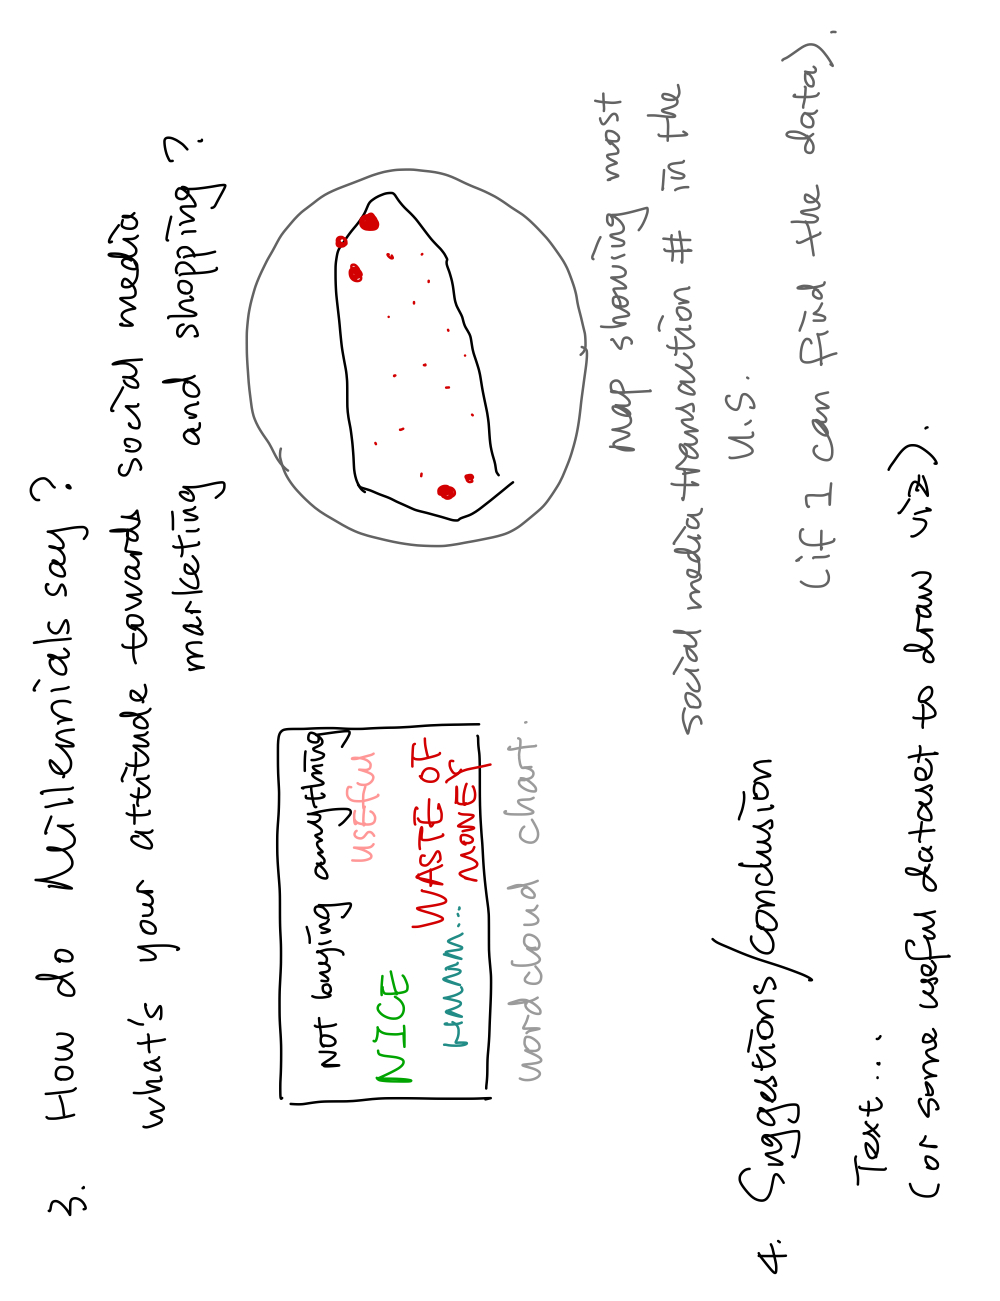 3. How do Millennials say?
what's your attitude towards social media
marketing and shopping?
NOT buying anything
USEFUL
NICE
WASTE OF
MONEY
HMMM...
wordcloud chart.
Map showing most
social media transaction # in the
U.S.
(if I can find the data).
4. Suggestions/conclusion
Text...
(or some useful dataset to draw viz).